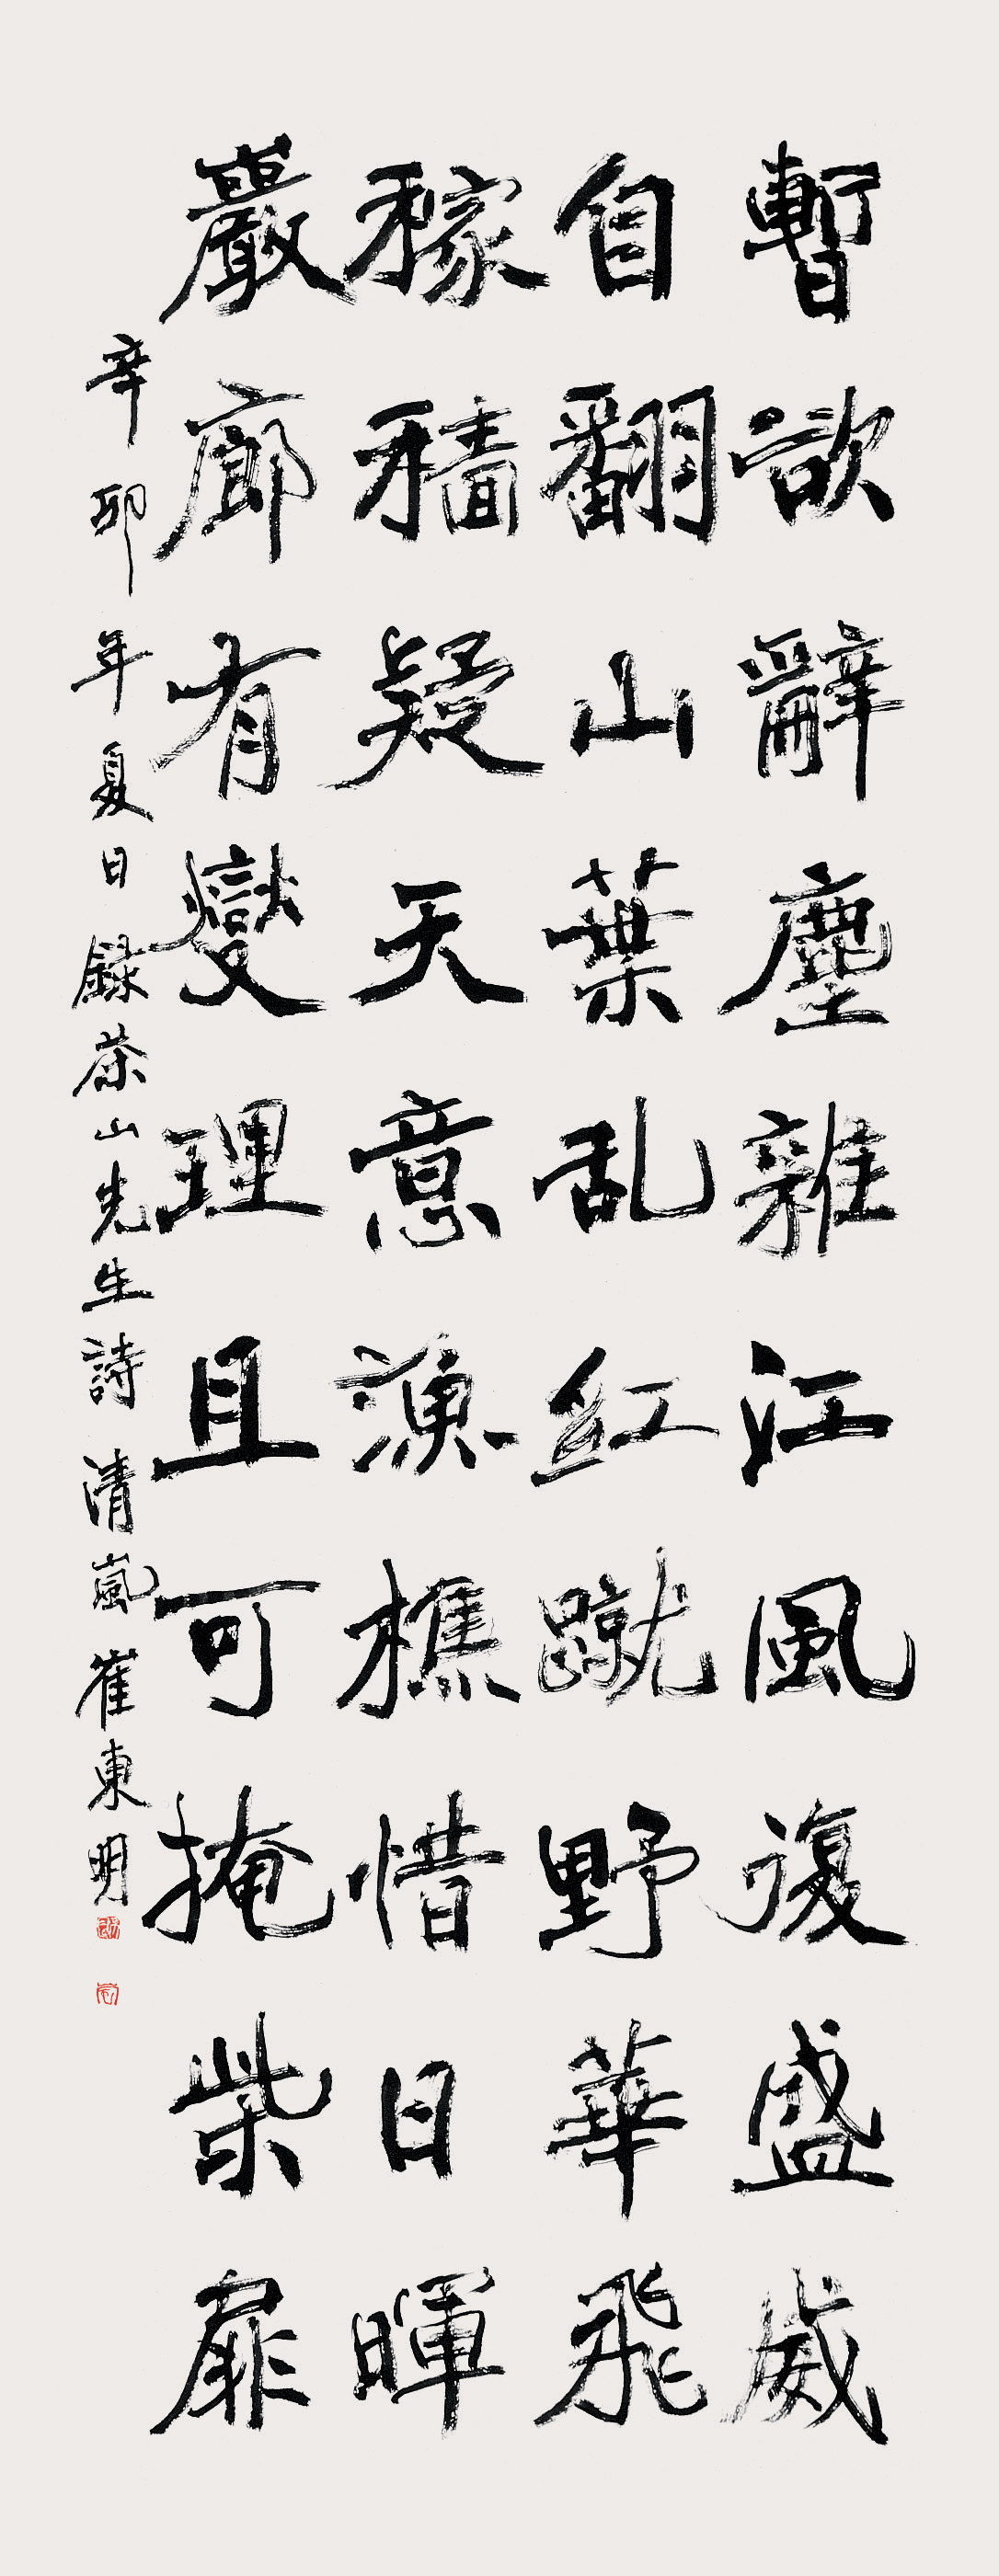 暫欲辭塵雜江風復盛威
自翻山葉乱紅蹴野華飛
稼穡疑天意漁樵惜日暉
嚴廊有燮理且可掩柴扉
辛卯年夏日錄茶山先生詩 清嵐 崔東明